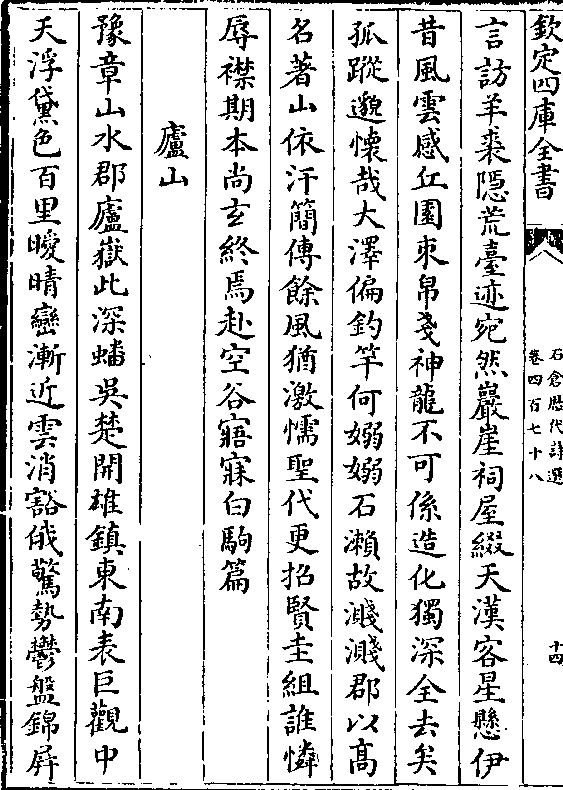 欽定四庫全書
石倉歷代詩選
卷四百七十八
十四
言訪羊裘隱荒臺迹宛然巖崖祠屋綴天漢客星懸伊
昔風雲感丘園束帛戔神龍不可係造化獨深全去矣
孤蹤邈懷哉大澤偏釣竿何嫋嫋石瀨故濺濺郡以高
名著山依汗簡傳餘風猶激懦聖代更招賢圭組誰憐
辱襟期本尚玄終焉赴空谷寤寐白駒篇
廬山
豫章山水郡廬嶽此深蟠吳楚開雄鎮東南表巨觀中
天浮黛色百里曖晴巒漸近雲消豁俄驚勢鬱盤錦屏